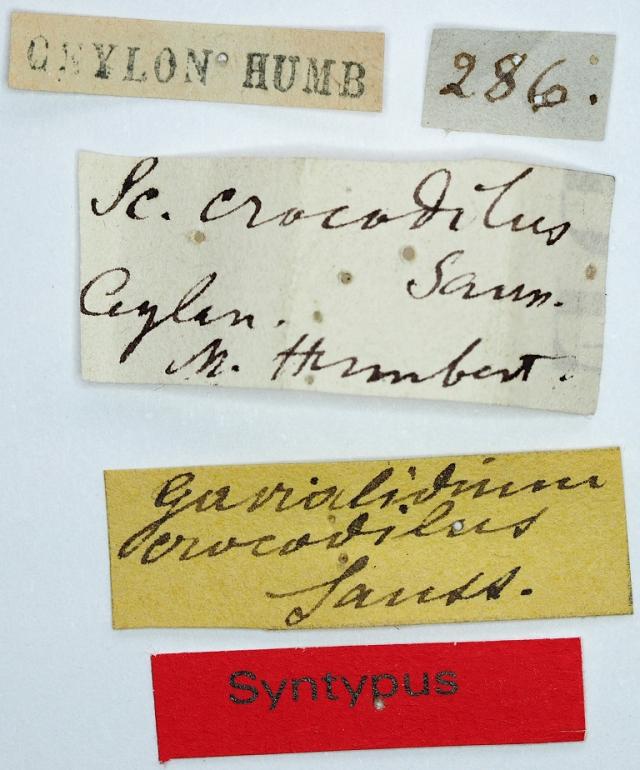 CEYLON HUMB
286.
Sc. crocodilus
Sauss.
Ceylan.
M. Humbert.
Gavialidium
crocodilus
Sauss.
Syntypus